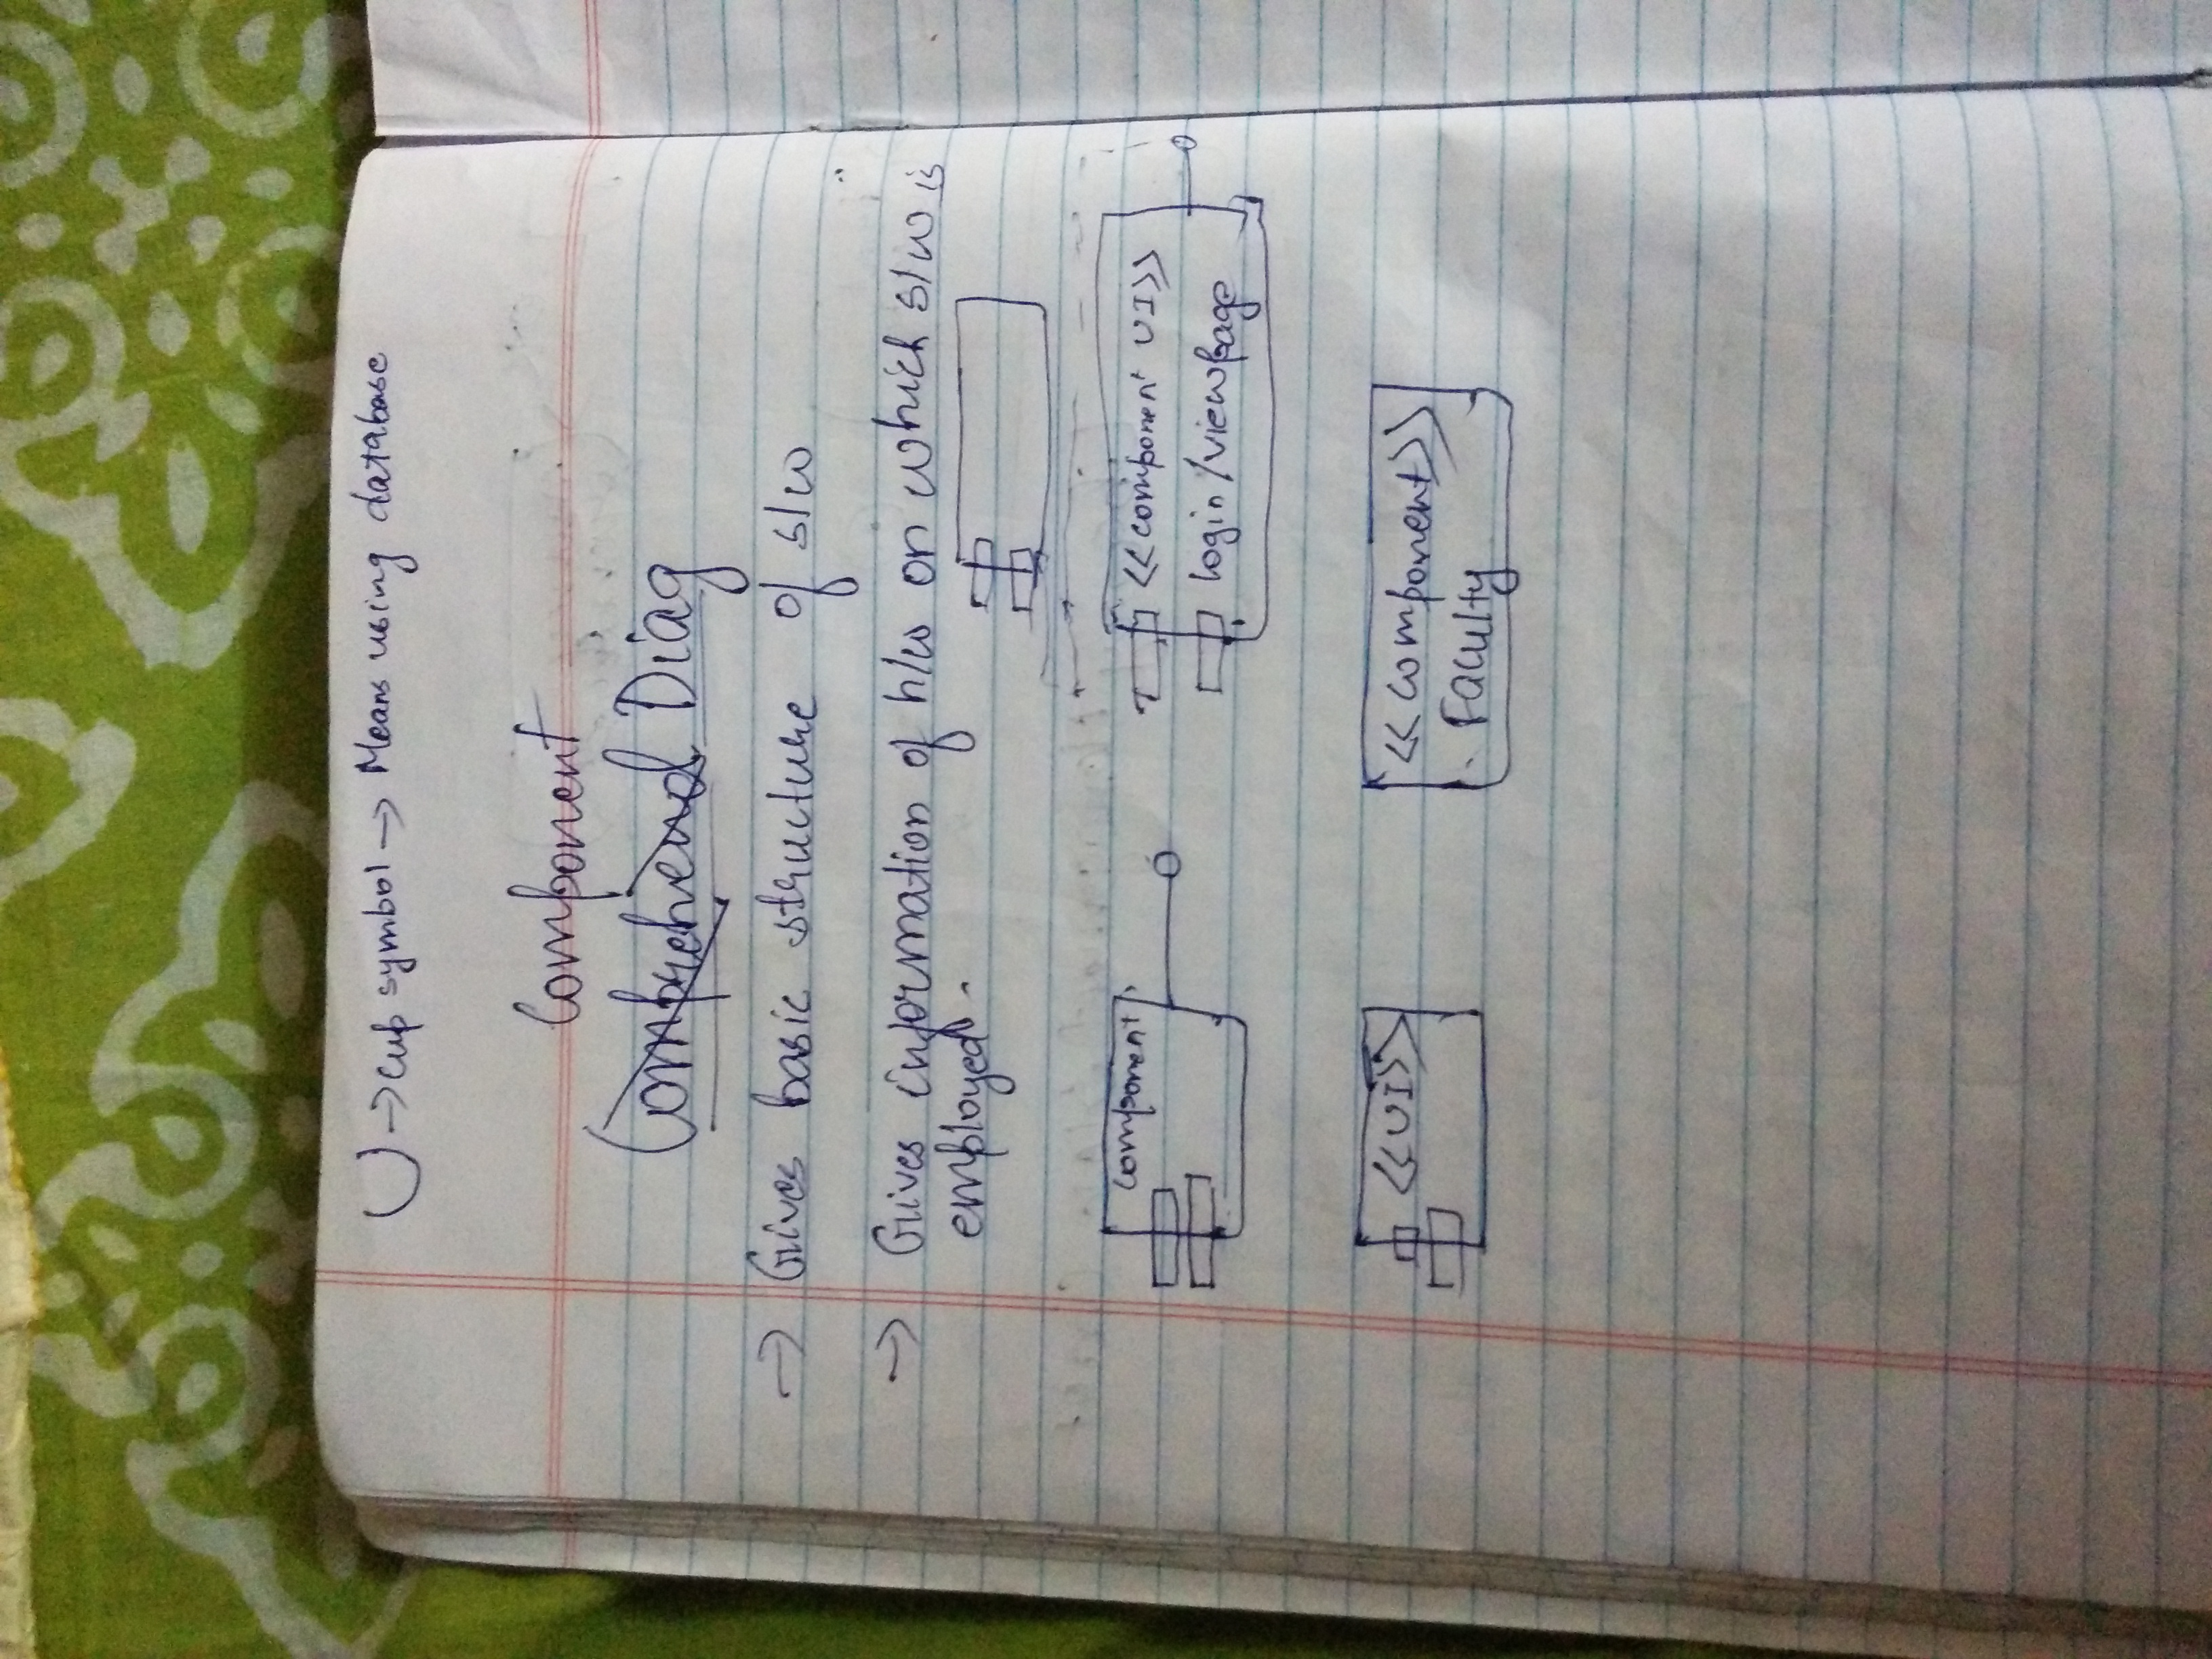 → cup symbol → Means using database
Component
Comprehend Diag
→ Gives basic structure of s/w
→ Gives information of h/w on which s/w is
employed.
component
<<component UI>>
login/viewpage
<<UI>>
<<component>>
Faculty